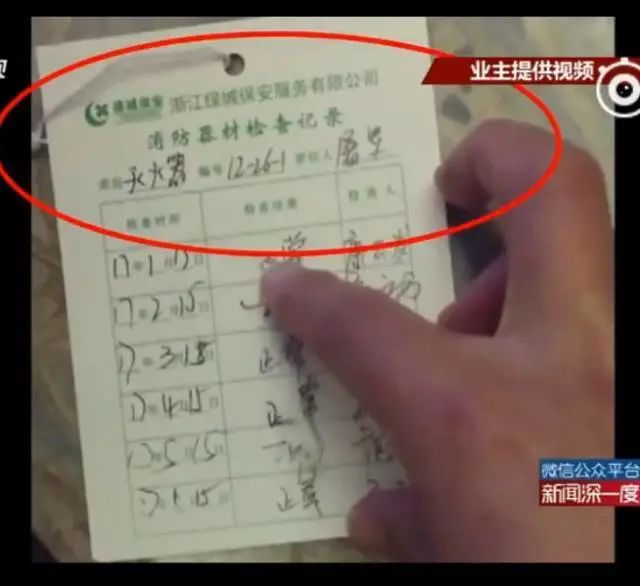 业主提供视频
绿城保安 浙江绿城保安服务有限公司
消防器材检查记录
类别 灭火器 编号 12-26-1 责任人
检查时间 检查结果 检查人
17年1月15日 正常
17年2月15日
17年3月15日 正常
17年4月15日 正常
17年5月15日
17年6月15日 正常
微信公众平台
新闻深一度